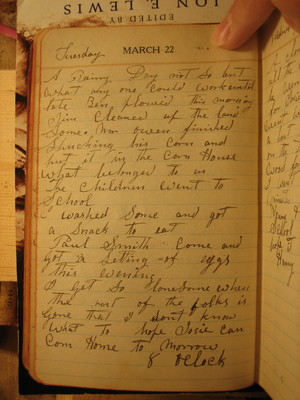 ION E. LEWIS
EDITED BY
Tuesday
MARCH 22
A Rainy Day not So but
what any one could work until
late Ben plowed this morning
Jim Cleaned up the land
Some. Wm Owens finished
Shucking his Corn and
put it in the Corn House
what belonged to us
The Childrens went to
School
I washed Some and got
a Snack to eat
Paul Smith Come and
Got a Setting of eggs
this evening
I get So lonesome when
the rest of the folks is
gone that I don't know
what to hope Josie can
Com Home to Morrow
8 Oclock